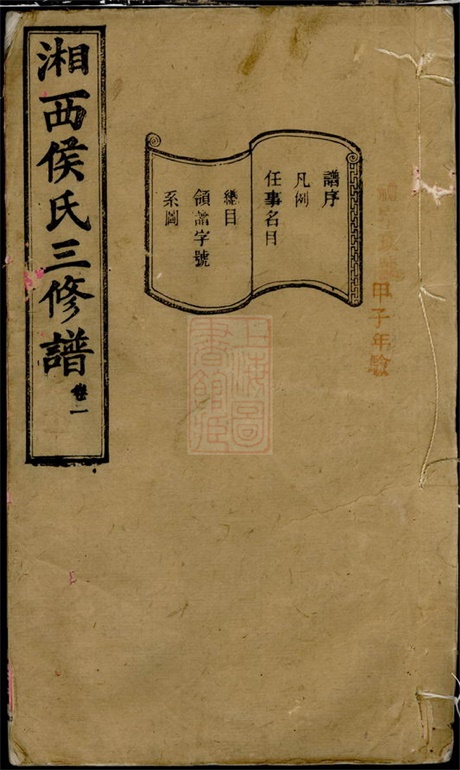 湘西侯氏三修譜
卷一
譜序
凡例
任事名目
總目
領譜字號
系圖
甲子年
上海圖書館藏